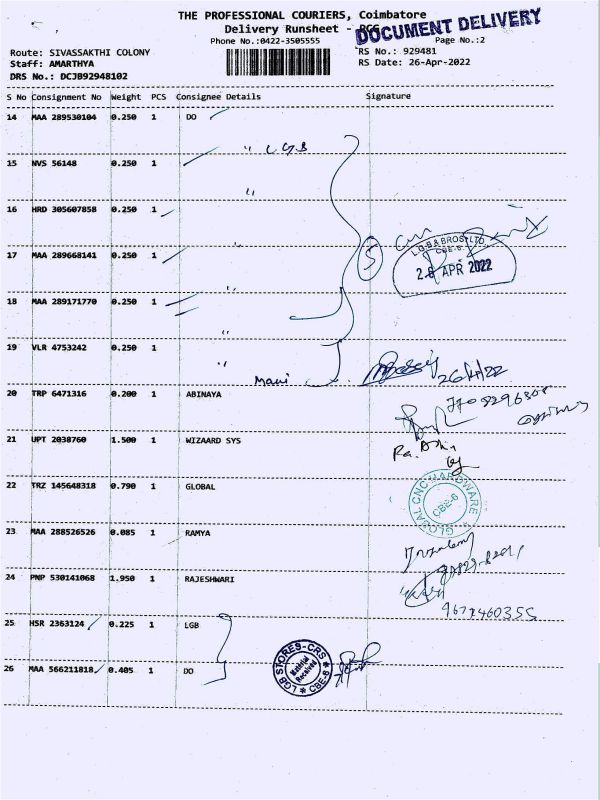 THE PROFESSIONAL COURIERS, Coimbatore
Delivery Runsheet -
DOCUMENT DELIVERY
Phone No.:0422-3505555
Page No.:2
Route: SIVASSAKTHI COLONY
RS No.: 929481
Staff: AMARTHYA
RS Date: 26-Apr-2022
DRS No.: DCJB92948102
S No Consignment No Weight PCS Consignee Details Signature
14 MAA 289530104 0.250 1 DO
" L.G.B
15 NVS 56148 0.250 1
"
16 HRD 305607858 0.250 1
17 MAA 289668141 0.250 1
5
L.G.B & BROS. LTD.
CBE-6.
26 APR 2022
"
18 MAA 289171770 0.250 1
"
19 VLR 4753242 0.250 1
"
Mani
26/4/22
20 TRP 6471316 0.200 1 ABINAYA
21 UPT 2038760 1.500 1 WIZAARD SYS
22 TRZ 145648318 0.790 1 GLOBAL
GLOBAL CNC HARDWARE
CBE-6
23 MAA 288526526 0.085 1 RAMYA
24 PNP 530141068 1.950 1 RAJESHWARI
25 HSR 2363124 0.225 1 LGB
26 MAA 566211818 0.405 1 DO
LGB STORES-CRS
Material
Received
CBE-6